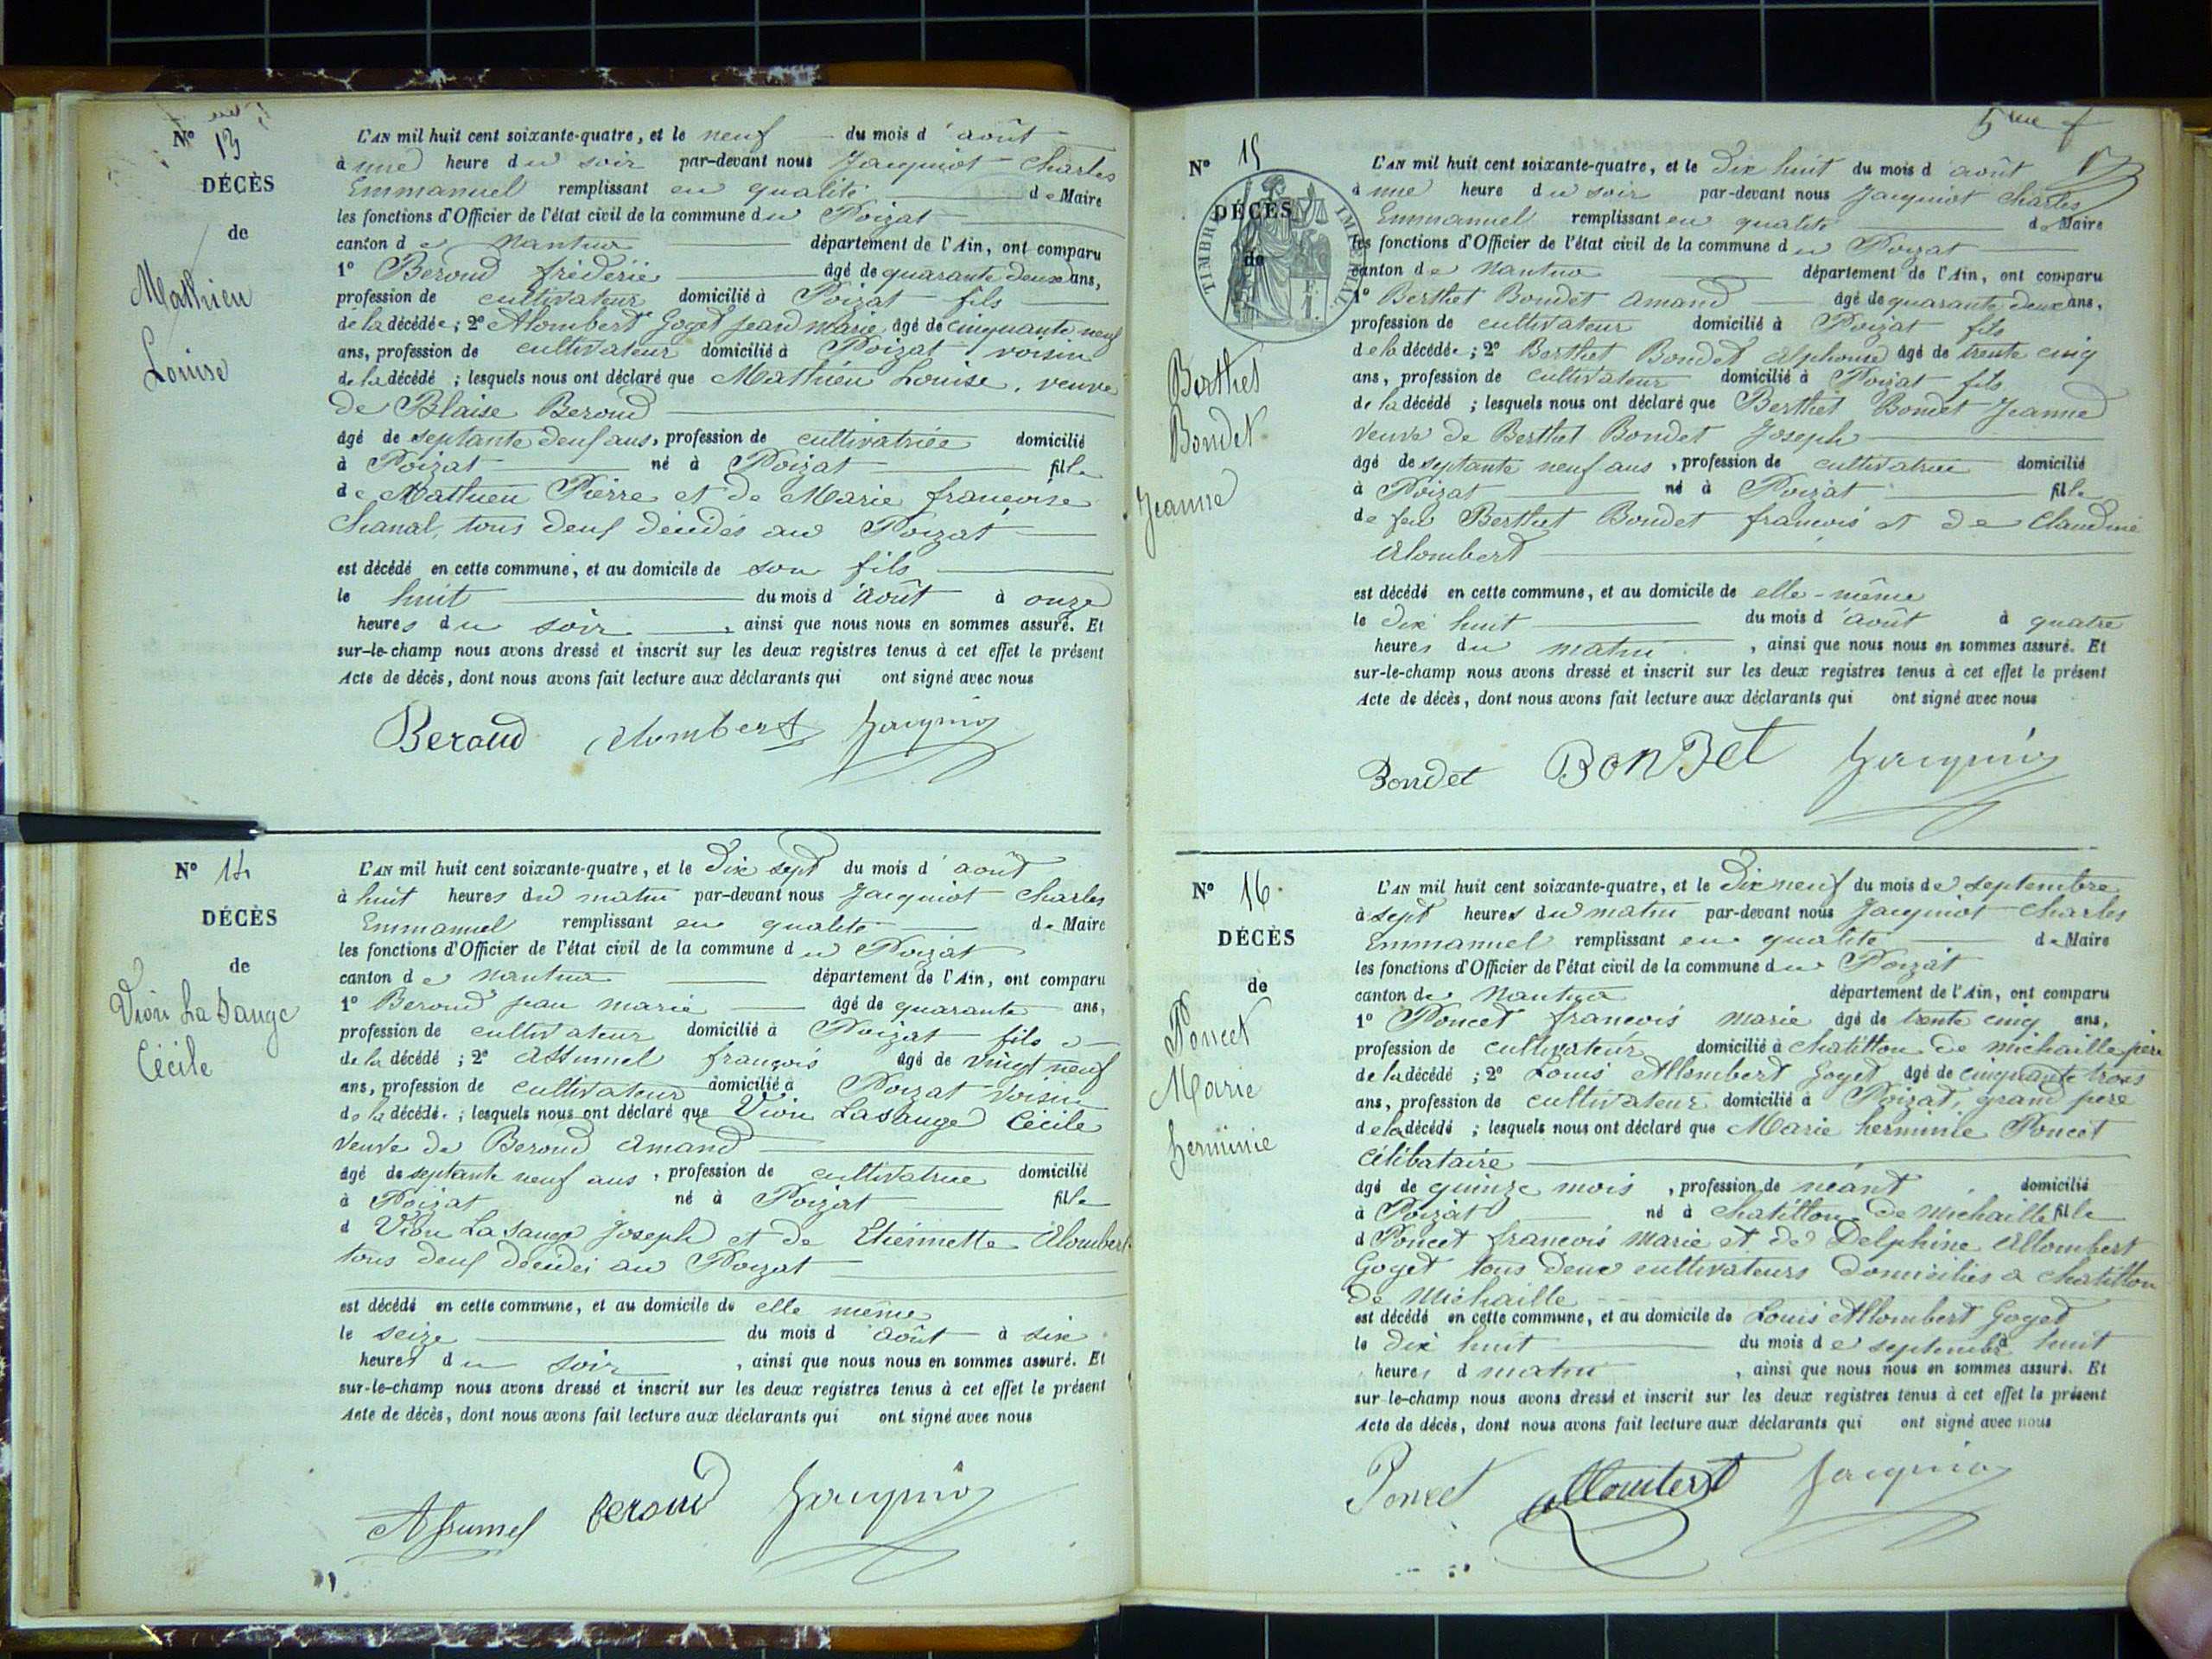 N° 13
DÉCÈS
de
Mathieu
Louise
L'AN mil huit cent soixante-quatre, et le neuf du mois d'août
à une heure du soir par-devant nous Jacquiot Charles
Emmanuel remplissant en qualité de Maire
les fonctions d'Officier de l'état civil de la commune du Poizat
canton de Nantua département de l'Ain, ont comparu
1° Beroud fréderic âgé de quarante deux ans,
profession de cultivateur domicilié à Poizat fils
de la décédée; 2° Alombert Goget jean marie, âgé de cinquante neuf
ans, profession de cultivateur domicilié à Poizat voisin
de la décédé ; lesquels nous ont déclaré que Mathieu Louise, veuve
de Blaise Beroud
âgé de septante deuf ans, profession de cultivatrice domicilié
à Poizat né à Poizat fille
de Mathieu Pierre et de Marie françoise
Chanal, tous deuf décidés au Poizat
est décédé en cette commune, et au domicile de son fils
le huit du mois d'août à onze
heures du soir, ainsi que nous nous en sommes assuré. Et
sur-le-champ nous avons dressé et inscrit sur les deux registres tenus à cet effet le présent
Acte de décès, dont nous avons fait lecture aux déclarants qui ont signé avec nous
Beroud Alombert Jacquiot
N° 14
DÉCÈS
de
Vion La Sauge
Cécile
L'AN mil huit cent soixante-quatre, et le Dix sept du mois d'août
à huit heures du matin par-devant nous Jacquiot Charles
Emmanuel remplissant en qualité de Maire
les fonctions d'Officier de l'état civil de la commune du Poizat
canton de Nantua département de l'Ain, ont comparu
1° Beroud jean marie âgé de quarante ans,
profession de cultivateur domicilié à Poizat fils
de la décédé ; 2° Assumel françois âgé de vingt neuf
ans, profession de cultivateur domicilié à Poizat voisin
de la décédé. ; lesquels nous ont déclaré que Vion Lasauge Cécile
veuve de Beroud Amand
âgé de septante neuf ans, profession de cultivatrice domicilié
à Poizat né à Poizat fille
d Vion La Sauge Joseph et de Etiennette Alombert
tous deuf décidés au Poizat
est décédé en cette commune, et au domicile de elle même
le seize du mois d'août à six
heures du soir, ainsi que nous nous en sommes assuré. Et
sur-le-champ nous avons dressé et inscrit sur les deux registres tenus à cet effet le présent
Acte de décès, dont nous avons fait lecture aux déclarants qui ont signé avec nous
Assumel beroud Jacquiot
5me f
N° 15
DÉCÈS
de
TIMBRE IMPÉRIAL
Berthet
Bondet
Jeanne
L'AN mil huit cent soixante-quatre, et le Dix huit du mois d'août
à une heure du soir par-devant nous Jacquiot Charles
Emmanuel remplissant en qualité de Maire
les fonctions d'Officier de l'état civil de la commune du Poizat
canton de Nantua département de l'Ain, ont comparu
1° Berthet Bondet Amand âgé de quarante deux ans,
profession de cultivateur domicilié à Poizat fils
de la décédée; 2° Berthet Bondet Alphonse âgé de trente cinq
ans, profession de cultivateur domicilié à Poizat fils
de la décédé ; lesquels nous ont déclaré que Berthet Bondet Jeanne
Veuve de Berthet Bondet Joseph
âgé de septante neuf ans, profession de cultivatrice domicilié
à Poizat né à Poizat fille
de feu Berthet Bondet françois et de Claudine
Alombert
est décédé en cette commune, et au domicile de elle-même
le Dix huit du mois d'août à quatre
heures du matin, ainsi que nous nous en sommes assuré. Et
sur-le-champ nous avons dressé et inscrit sur les deux registres tenus à cet effet le présent
Acte de décès, dont nous avons fait lecture aux déclarants qui ont signé avec nous
Bondet BonDet Jacquiot
N° 16.
DÉCÈS
de
Poncet
Marie
herminie
L'AN mil huit cent soixante-quatre, et le Dix neuf du mois de septembre
à sept heures du matin par-devant nous Jacquiot Charles
Emmanuel remplissant en qualité de Maire
les fonctions d'Officier de l'état civil de la commune du Poizat
canton de Nantua département de l'Ain, ont comparu
1° Poncet francois marie âgé de trente cinq ans,
profession de cultivateur domicilié à Chatillon de michaille père
de la décédé ; 2° Louis Allombert Goget âgé de cinquante trois
ans, profession de cultivateur domicilié à Poizat, grand pere
de la décédé ; lesquels nous ont déclaré que Marie herminie Poncet
Célibataire
âgé de quinze mois, profession de néant domicilié
à Poizat né à Chatillon de Michaille fille
d Poncet francois Marie et de Delphine Allombert
Goget tous deux cultivateurs domiciliés a Chatillon
de Michaille
est décédé en cette commune, et au domicile de Louis Allombert Goget
le Dix huit du mois de septembre à huit
heures d matin, ainsi que nous nous en sommes assuré. Et
sur-le-champ nous avons dressé et inscrit sur les deux registres tenus à cet effet le présent
Acte de décès, dont nous avons fait lecture aux déclarants qui ont signé avec nous
Poncet Allombert Jacquiot